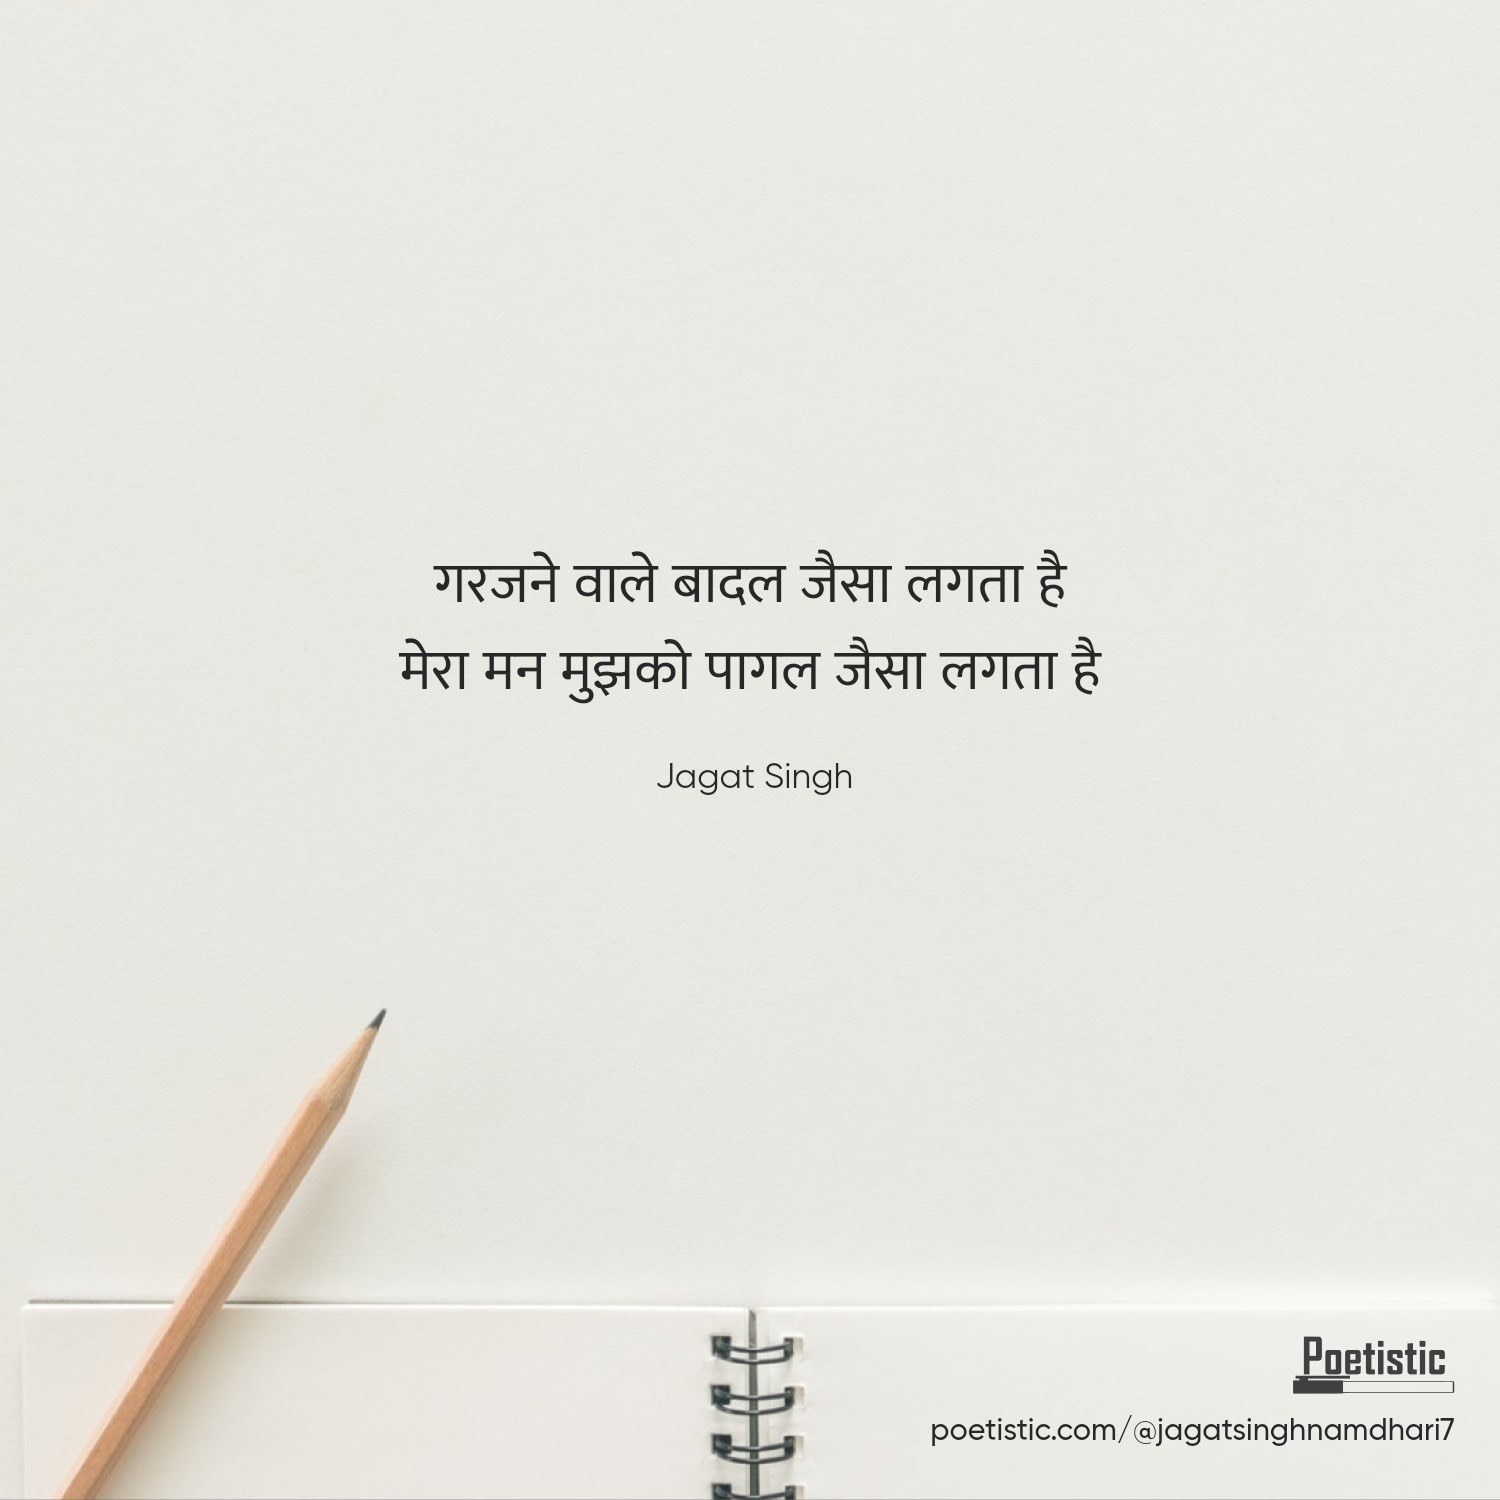 गरजने वाले बादल जैसा लगता है
मेरा मन मुझको पागल जैसा लगता है
Jagat Singh
Poetistic
poetistic.com/@jagatsinghnamdhari7